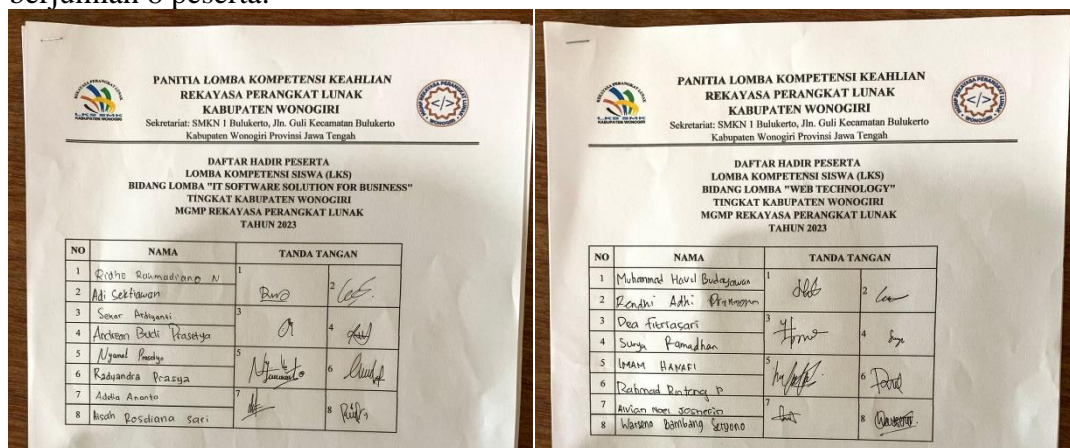 berjumlah 8 peserta.
PANITIA LOMBA KOMPETENSI KEAHLIAN
REKAYASA PERANGKAT LUNAK
KABUPATEN WONOGIRI
Sekretariat: SMKN 1 Bulukerto, Jln. Guli Kecamatan Bulukerto
Kabupaten Wonogiri Provinsi Jawa Tengah
DAFTAR HADIR PESERTA
LOMBA KOMPETENSI SISWA (LKS)
BIDANG LOMBA "IT SOFTWARE SOLUTION FOR BUSINESS"
TINGKAT KABUPATEN WONOGIRI
MGMP REKAYASA PERANGKAT LUNAK
TAHUN 2023
NO NAMA TANDA TANGAN
1 Ridho Rahmadiano N 1
2 Adi Sektiawan 2
3 Sekar Ardiyanti 3
4 Andrean Budi Prasetya 4
5 Nyamel Prasetyo 5
6 Radyandra Prasya 6
7 Adelia Ananta 7
8 Aisah Rosdiana Sari 8
PANITIA LOMBA KOMPETENSI KEAHLIAN
REKAYASA PERANGKAT LUNAK
KABUPATEN WONOGIRI
Sekretariat: SMKN 1 Bulukerto, Jln. Guli Kecamatan Bulukerto
Kabupaten Wonogiri Provinsi Jawa Tengah
DAFTAR HADIR PESERTA
LOMBA KOMPETENSI SISWA (LKS)
BIDANG LOMBA "WEB TECHNOLOGY"
TINGKAT KABUPATEN WONOGIRI
MGMP REKAYASA PERANGKAT LUNAK
TAHUN 2023
NO NAMA TANDA TANGAN
1 Muhammad Budayawan 1
2 Rendhi Adhi 2
3 Dea Fitriasari 3
4 Surya Ramadhan 4
5 IMAM HANAFI 5
6 Rahmad Bintang P 6
7 Alvian Noel 7
8 Warseno Bambang Sugiono 8